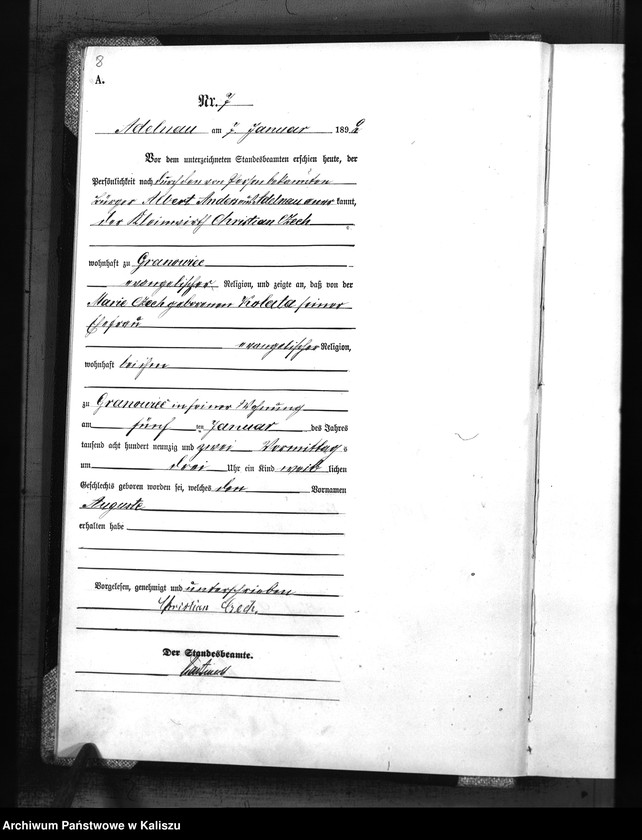 8
A.
Nr. 7
Adelnau am 7 Januar 1892
Vor dem unterzeichneten Standesbeamten erschien heute, der
Persönlichkeit nach durch den von Person bekannten
Bürger Albert Anders aus Adelnau kannt,
der Kleinwirth Christian Czech
wohnhaft zu Granowiec
evangelischer Religion, und zeigte an, daß von der
Marie Czech geborenen Kolata seiner
Ehefrau
evangelischer Religion,
wohnhaft bei ihm
zu Granowiec in seiner Wohnung
am fünf ten Januar des Jahres
tausend acht hundert neunzig und zwei Vormittag s
um drei Uhr ein Kind weib lichen
Geschlechts geboren worden sei, welches den Vornamen
Auguste
erhalten habe
Vorgelesen, genehmigt und unterschrieben
Christian Czech.
Der Standesbeamte.
Archiwum Państwowe w Kaliszu